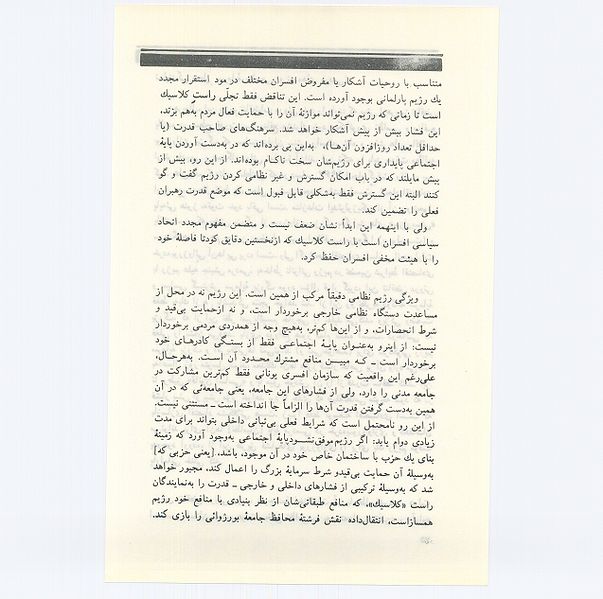 متناسب با روحیات آشکار یا مفروض افسران مختلف در مود استقرار مجدد
یك رژیم پارلمانی بوجود آورده است. این تناقض فقط تجلّی راست کلاسیك
است تا زمانی که رژیم نمی‌تواند موازنهٔ آن را با حمایت فعال مردم به‌هم بزند،
این فشار بیش از پیش آشکار خواهد شد. سرهنگ‌های صاحب قدرت (یا
حداقل تعداد روزافزون آن‌ها)، به‌این پی برده‌اند که در به‌دست آوردن پایهٔ
اجتماعی پایداری برای رژیم‌شان سخت ناکام بوده‌اند. از این رو، بیش از
پیش مایلند که در باب امکان گسترش و غیر نظامی کردن رژیم گفت و گو
کنند البته این گسترش فقط به‌شکلی قابل قبول است که موضع قدرت رهبران
فعلی را تضمین کند.
ولی با اینهمه این ابداً نشان ضعف نیست و متضمن مفهوم مجدد اتحاد
سیاسی افسران است با راست کلاسیك که ازنخستین دقایق کودتا فاصلهٔ خود
را با هیئت مخفی افسران حفظ کرد.
ویژگی رژیم نظامی دقیقاً مرکب از همین است. این رژیم نه در محل از
مساعدت دستگاه نظامی خارجی برخوردار است، و نه ازحمایت بی‌قید و
شرط انحصارات، و از این‌ها کم‌تر، به‌هیچ وجه از همدردی مردمی برخوردار
نیست: از اینرو به‌عنوان پایهٔ اجتماعـی فقط از بستـگی کادرهـای خود
برخوردار است ــ کـه مبیـن منافع مشترك محدود آن اسـت. به‌هرحـال،
علی‌رغم این واقعیت که سازمان افسری یونانی فقط کم‌ترین مشارکت در
جامعه مدنی را دارد، ولی از فشارهای این جامعه، یعنی جامعه‌ئی که در آن
همین به‌دست گرفتن قدرت آن‌ها را الزاماً جا انداخته است ــ مستثنی نیست.
از این رو نامحتمل است که شرایط فعلی بی‌ثباتی داخلی بتواند برای مدت
زیادی دوام یابد: اگر رژیم‌موفق‌نشـودپایهٔ اجتماعی به‌وجود آورد که زمینهٔ
بنای یك حزب با ساختمان خاص خود در آن موجود، باشد، [یعنی حزبی که]
به‌وسیلهٔ آن حمایت بی‌قیدو شرط سرمایهٔ بزرگ را اعمال کند، مجبور خواهد
شد که به‌وسیلهٔ ترکیبی از فشارهای داخلی و خارجی ــ قدرت را به‌نمایندگان
راست «کلاسیك»، که منافع طبقاتی‌شان از نظر بنیادی با منافع خود رژیم
همسازاست، انتقال‌داده نقش فرشتهٔ محافظ جامعهٔ بورژوائی را بازی کند.